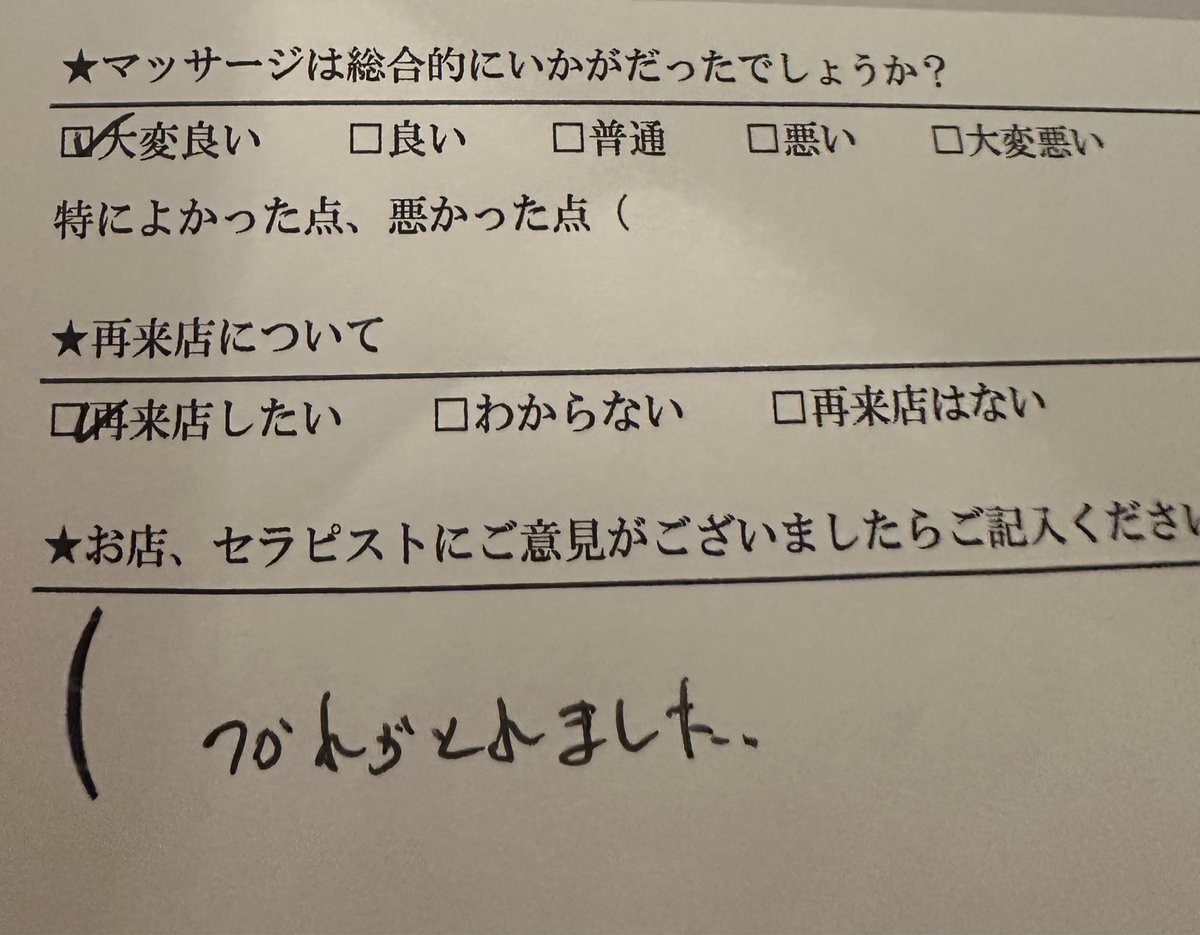 ★マッサージは総合的にいかがだったでしょうか？
☑大変良い □良い □普通 □悪い □大変悪い
特によかった点、悪かった点（
★再来店について
☑再来店したい □わからない □再来店はない
★お店、セラピストにご意見がございましたらご記入ください
（
つかれがとれました。